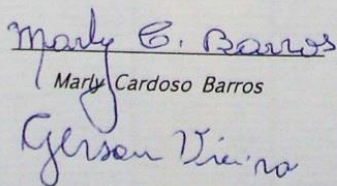 Marly C. Barros
Marly Cardoso Barros
Gerson Vieira